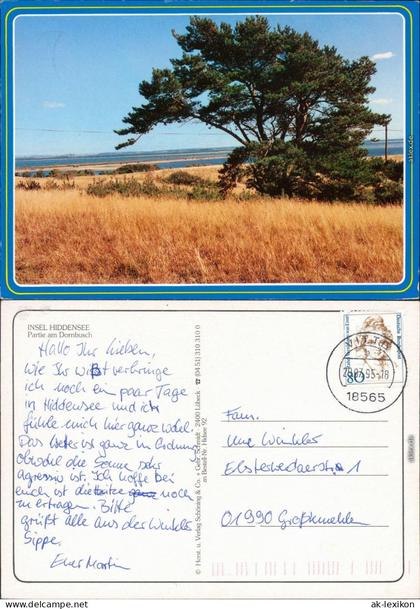 ak-lexikon.de
INSEL HIDDENSEE
Partie am Dornbusch
Hallo Ihr Lieben,
wie Ihr wißt verbringe
ich noch ein paar Tage
in Hiddensee und ich
fühle mich hier ganz wohl.
Das Wetter ist ganz in Ordnung
obwohl die Sonne sehr
agressiv ist. Ich hoffe bei
euch ist die Hitze noch
zu ertragen. Bitte
grüßt alle aus der Winkler
Sippe.
Euer Martin
© Herst. u. Verlag Schöning & Co. + Gebr. Schmidt · 2400 Lübeck ☎ (04 51) 310 310 0
an Bestell-Nr. Hidsee 92
80
95-18
18565
Fam.
Uwe Winkler
1
01990 Großkmehlen
© ak-lexikon